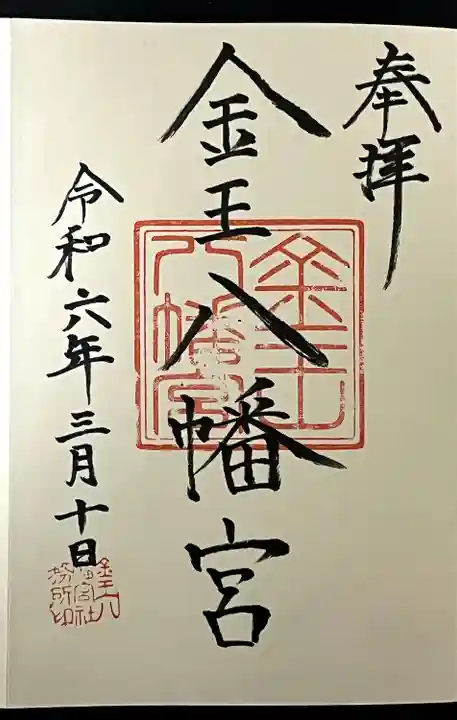 奉拝
金王八幡宮
金王八幡宮
令和六年三月十日
金王八幡宮社務所印